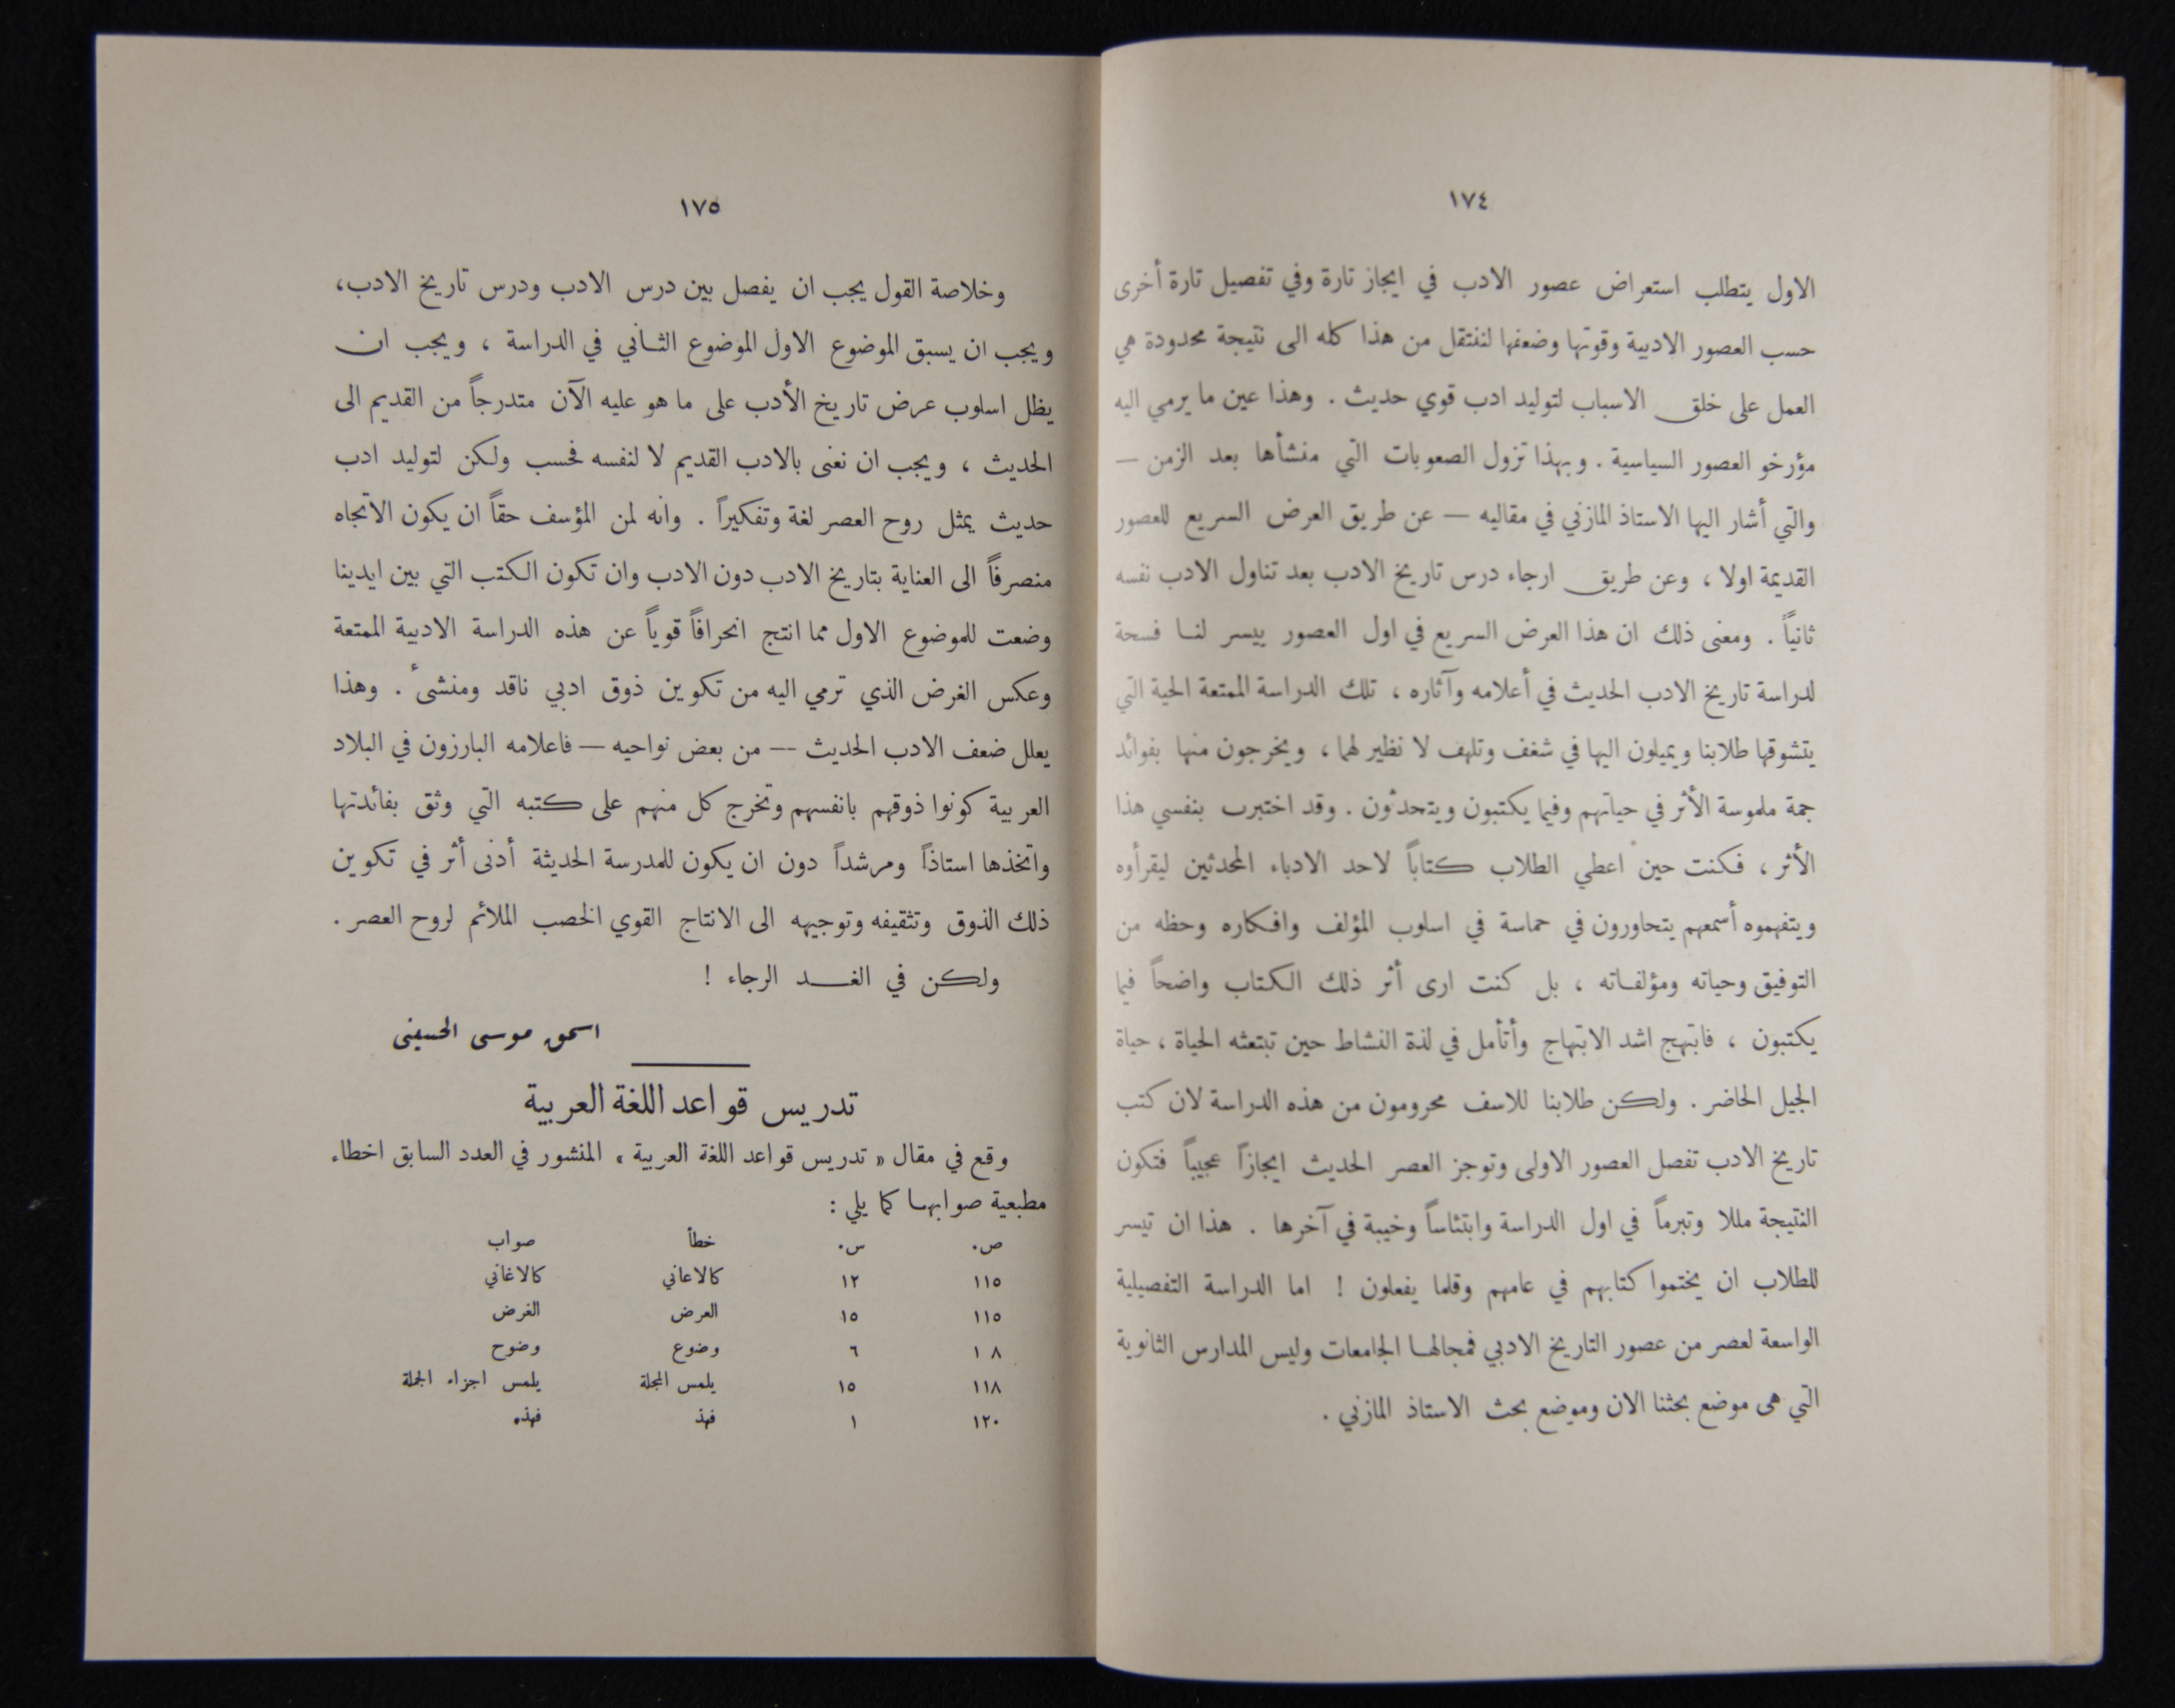 ١٧٤
الاول يتطلب استعراض عصور الادب في ايجاز تارة وفي تفصيل تارة أخرى
حسب العصور الادبية وقوتها وضعفها لننتقل من هذا كله الى نتيجة محدودة هي
العمل على خلق الاسباب لتوليد ادب قوي حديث . وهذا عين ما يرمي اليه
مؤرخو العصور السياسية . وبهذا تزول الصعوبات التي منشأها بعد الزمن —
والتي أشار اليها الاستاذ المازني في مقاليه — عن طريق العرض السريع للعصور
القديمة اولا ، وعن طريق ارجاء درس تاريخ الادب بعد تناول الادب نفسه
ثانياً . ومعنى ذلك ان هذا العرض السريع في اول العصور ييسر لنا فسحة
لدراسة تاريخ الادب الحديث في أعلامه وآثاره ، تلك الدراسة الممتعة الحية التي
يتشوقها طلابنا ويميلون اليها في شغف وتلهف لا نظير لهما ، ويخرجون منها بفوائد
جمة ملموسة الأثر في حياتهم وفيما يكتبون ويتحدثون . وقد اختبرت بنفسي هذا
الأثر ، فكنت حين اعطي الطلاب كتاباً لاحد الادباء المحدثين ليقرأوه
ويتفهموه أسمعهم يتحاورون في حماسة في اسلوب المؤلف وافكاره وحظه من
التوفيق وحياته ومؤلفاته ، بل كنت ارى أثر ذلك الكتاب واضحاً فيما
يكتبون ، فابتهج اشد الابتهاج وأتأمل في لذة النشاط حين تبتعثه الحياة ، حياة
الجيل الحاضر . ولكن طلابنا للاسف محرومون من هذه الدراسة لان كتب
تاريخ الادب تفصل العصور الاولى وتوجز العصر الحديث ايجازاً عجيباً فتكون
النتيجة مللا وتبرماً في اول الدراسة وابتئاساً وخيبة في آخرها . هذا ان تيسر
للطلاب ان يختموا كتابهم في عامهم وقلما يفعلون ! اما الدراسة التفصيلية
الواسعة لعصر من عصور التاريخ الادبي فمجالها الجامعات وليس المدارس الثانوية
التي هى موضع بحثنا الان وموضع بحث الاستاذ المازني .
١٧٥
وخلاصة القول يجب ان يفصل بين درس الادب ودرس تاريخ الادب،
ويجب ان يسبق الموضوع الاول الموضوع الثاني في الدراسة ، ويجب ان
يظل اسلوب عرض تاريخ الأدب على ما هو عليه الآن متدرجاً من القديم الى
الحديث ، ويجب ان نعنى بالادب القديم لا لنفسه فحسب ولكن لتوليد ادب
حديث يمثل روح العصر لغة وتفكيراً . وانه لمن المؤسف حقاً ان يكون الاتجاه
منصرفاً الى العناية بتاريخ الادب دون الادب وان تكون الكتب التي بين ايدينا
وضعت للموضوع الاول مما انتج انحرافاً قوياً عن هذه الدراسة الادبية الممتعة
وعكس الغرض الذي ترمي اليه من تكوين ذوق ادبي ناقد ومنشىء . وهذا
يعلل ضعف الادب الحديث — من بعض نواحيه — فاعلامه البارزون في البلاد
العربية كونوا ذوقهم بانفسهم وتخرج كل منهم على كتبه التي وثق بفائدتها
واتخذها استاذاً ومرشداً دون ان يكون للمدرسة الحديثة أدنى أثر في تكوين
ذلك الذوق وتثقيفه وتوجيهه الى الانتاج القوي الخصب الملائم لروح العصر .
ولكن في الغد الرجاء !
اسحق موسى الحسيني
تدريس قواعد اللغة العربية
وقع في مقال « تدريس قواعد اللغة العربية » المنشور في العدد السابق اخطاء
مطبعية صوابها كما يلي :
ص. س. خطأ صواب
١١٥ ١٢ كالاعاني كالاغاني
١١٥ ١٥ العرض الغرض
١ ٨ ٦ وضوع وضوح
١١٨ ١٥ يلمس المجلة يلمس اجزاء الجملة
١٢٠ ١ فهذ فهذه